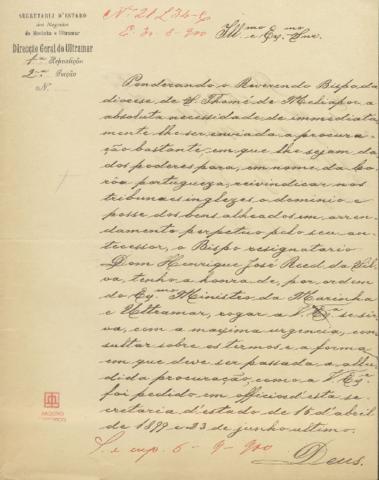 SECRETARIA D'ESTADO
dos Negocios
da Marinha e Ultramar
Direcção Geral do Ultramar
1.ª Repartição
2.ª Secção
N.º
E. 30-8-900
Ill.mo e Ex.mo Snr.
Ponderando o Reverendo Bispo da
diocese de S. Thomé de Meliapor a
absoluta necessidade de immediata-
mente lhe ser enviada a procura-
ção bastante, em que lhe sejam da-
dos poderes para, em nome da Co-
rôa portugueza, reivindicar nos
tribunaes inglezes, o dominio e
posse dos bens alheados em arren-
damento perpetuo pelo seu an-
tecessor, o Bispo resignatario
Dom Henrique José Reed da Sil-
va, tenho a honra de, por ordem
do Ex.mo Ministro da Marinha
e Ultramar, rogar a V. Ex.ª se sir-
va, com a maxima urgencia, con-
sultar sobre os termos e a forma
em que deve ser passada a allu-
dida procuração, como a V. Ex.ª
foi pedido em officios d'esta se-
cretaria d'estado de 15 d'abril
de 1899 e 23 de junho ultimo.
Deus.
6-9-900